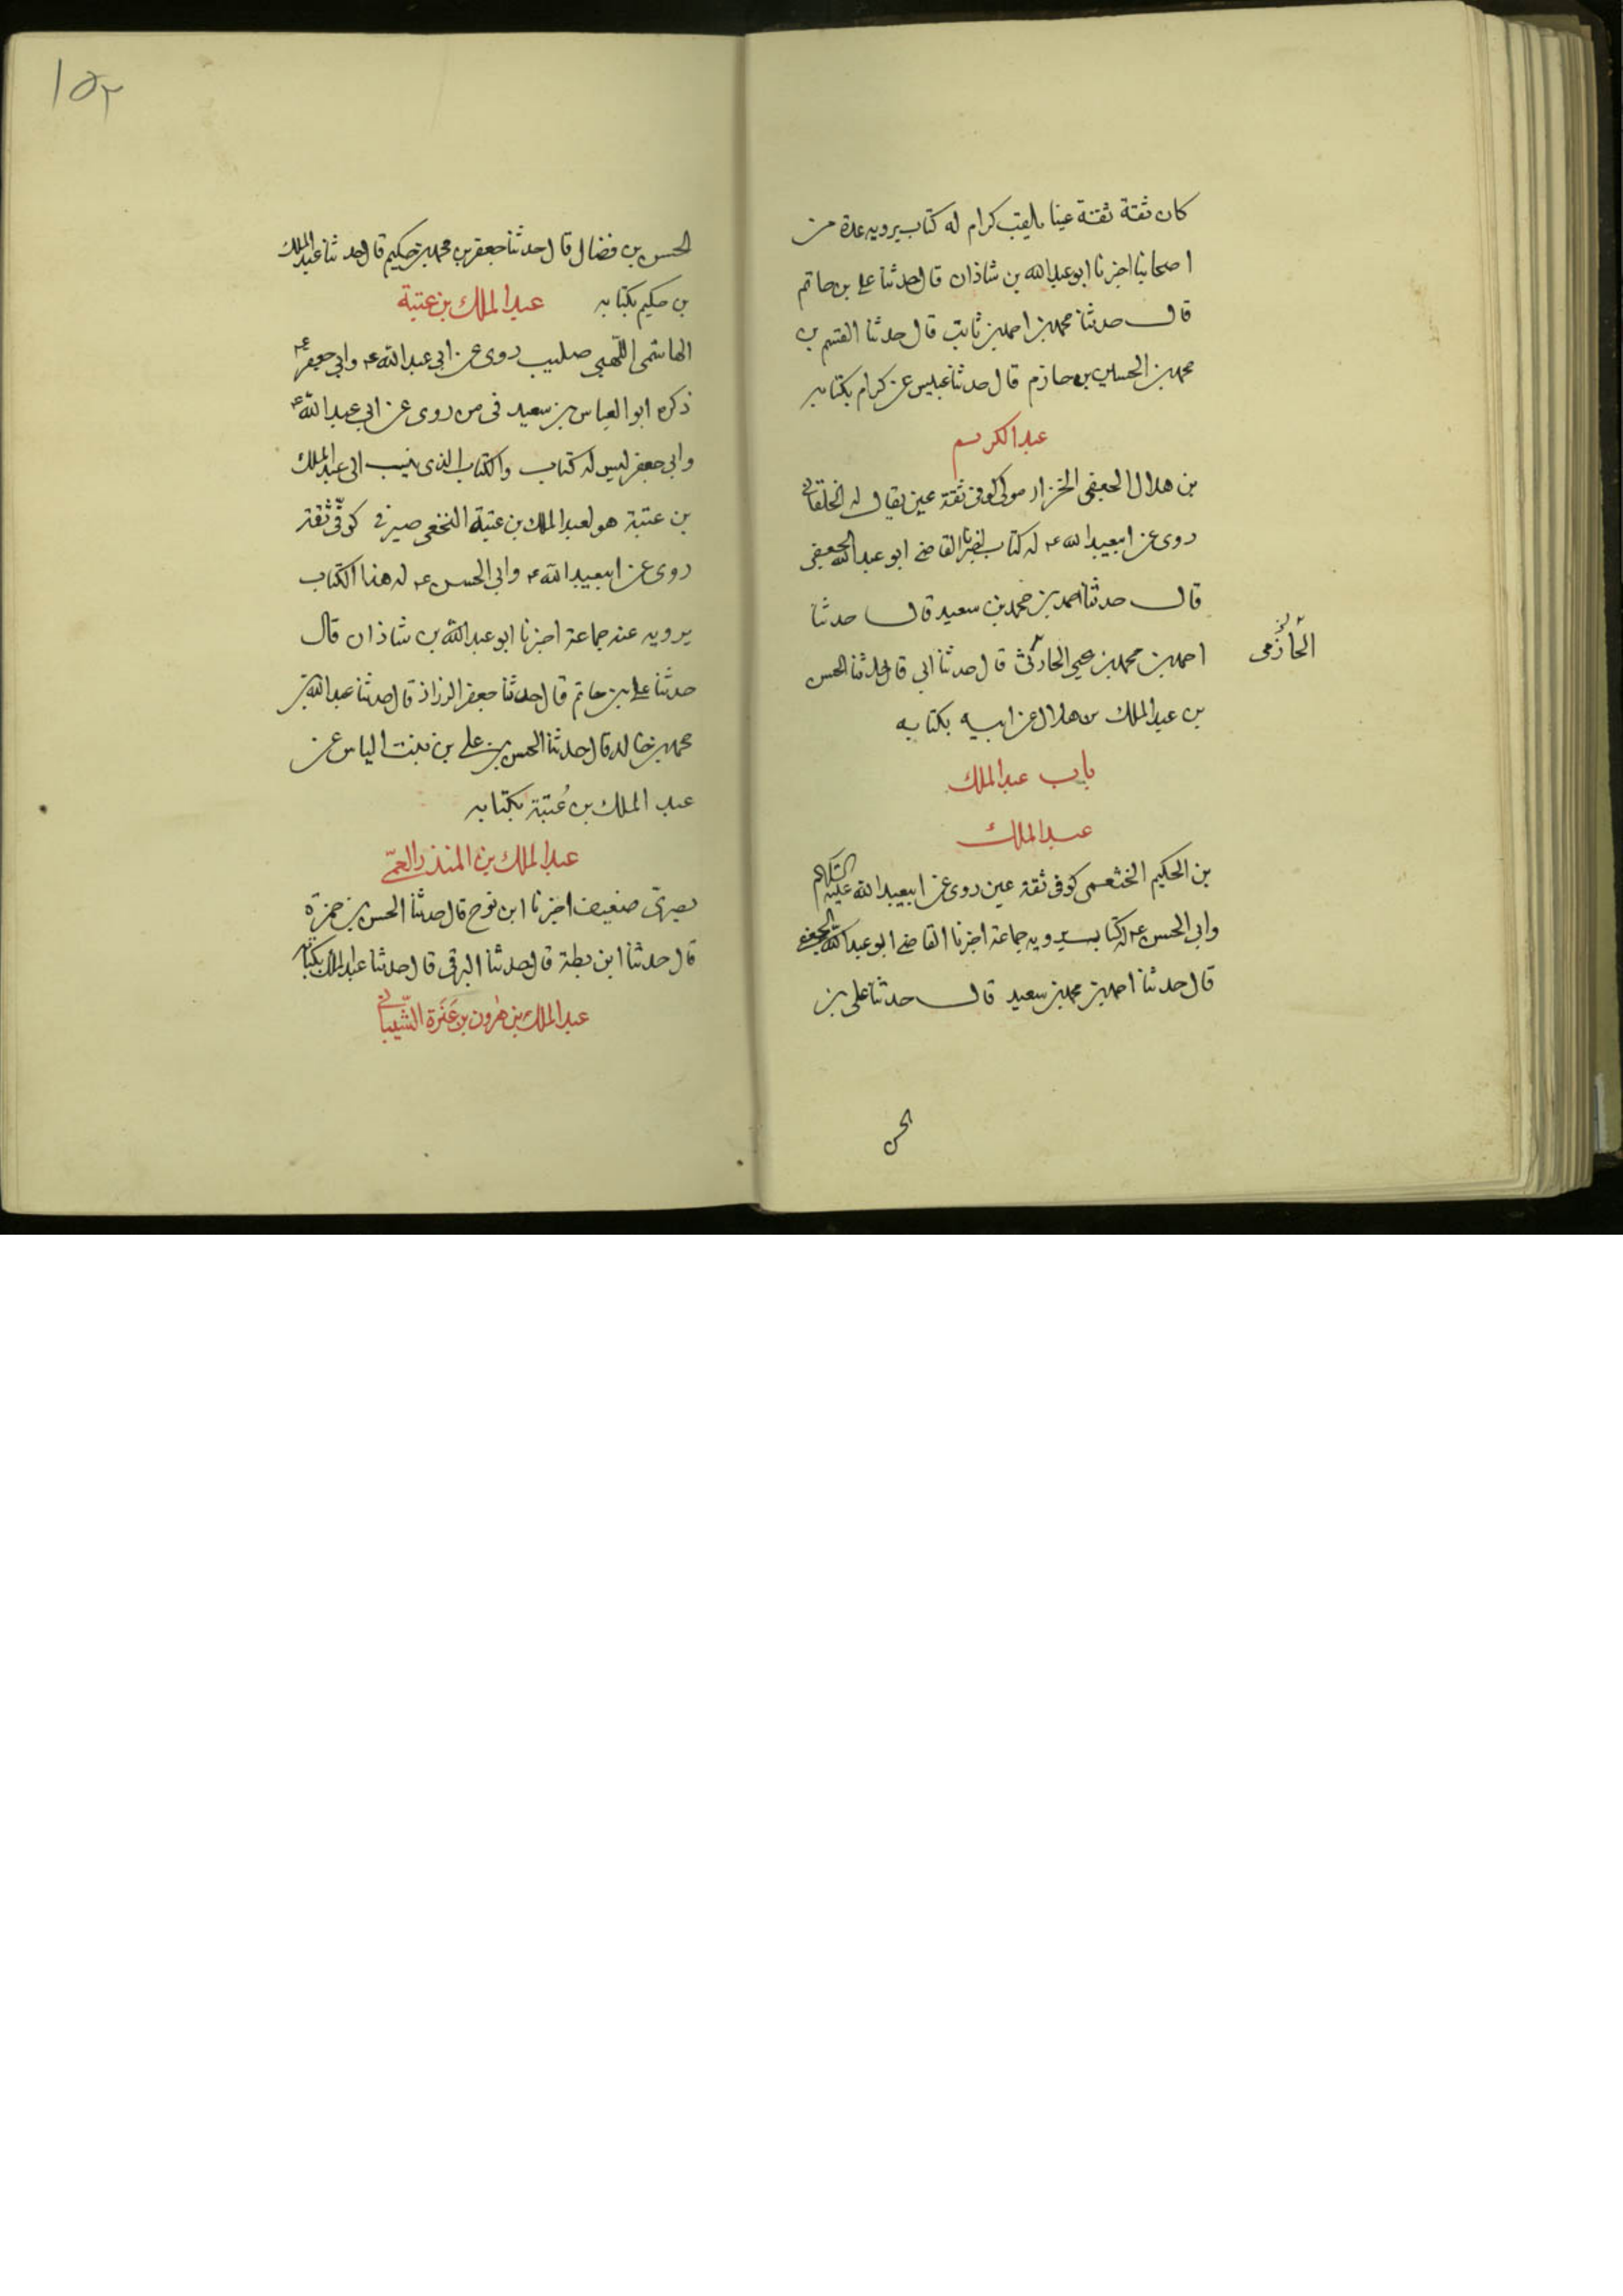 كان ثقة ثقة عينا يلقب كرام له كتاب يرويه عدة من
اصحابنا اخبرنا ابو عبد الله بن شاذان قال حدثنا علي بن حاتم
قال حدثنا محمد بن احمد بن ثابت قال حدثنا القسم بن
محمد بن الحسين بن حازم قال حدثنا عبيس عن كرام بكتابه
عبد الكريم
بن هلال الجعفي الخزاز مولى كوفي ثقة عين يقال له الخلقاني
روى عن ابيعبد الله ع له كتاب اخبرنا القاضي ابو عبد الله الجعفي
قال حدثنا احمد بن محمد بن سعيد قال حدثنا
احمد بن محمد بن يحيى الحارثي قال حدثنا ابي قال حدثنا الحسن
الحازمي
بن عبد الملك بن هلال عن ابيه بكتابه
باب عبد الملك
عبد الملك
بن الحكيم الخثعمي كوفي ثقة عين روى عن ابيعبد الله عليه السلام
وابي الحسن ع له كتاب يرويه جماعة اخبرنا القاضي ابو عبد الله الجعفي
قال حدثنا احمد بن محمد بن سعيد قال حدثنا علي بن
الحسن
١٥٢
الحسن بن فضال قال حدثنا جعفر بن محمد بن حكيم قال حدثنا عبد الملك
بن حكيم بكتابه عبد الملك بن عتبة
الهاشمي اللهبي صليب روى عن ابي عبد الله ع وابي جعفر ع
ذكره ابو العباس بن سعيد في من روى عن ابي عبد الله ع
وابي جعفر ليس له كتاب والكتاب الذي ينسب الى عبد الملك
بن عتبة هو لعبد الملك بن عتبة النخعي صيرفي كوفي ثقة
روى عن ابيعبد الله ع وابي الحسن ع له هذا الكتاب
يرويه عنه جماعة اخبرنا ابو عبد الله بن شاذان قال
حدثنا علي بن حاتم قال حدثنا جعفر الرزاز قال حدثنا عبد الله بن
محمد بن خالد قال حدثنا الحسن بن علي بن بنت الياس عن
عبد الملك بن عُتبة بكتابه
عبد الملك بن المنذر العمّي
بصريّ ضعيف اخبرنا ابن نوح قال حدثنا الحسن بن حمزة
قال حدثنا ابن بطة قال حدثنا البرقي قال حدثنا عبد الملك بكتابه
عبد الملك بن هٰرون بن عَنتَرة الشّيباني